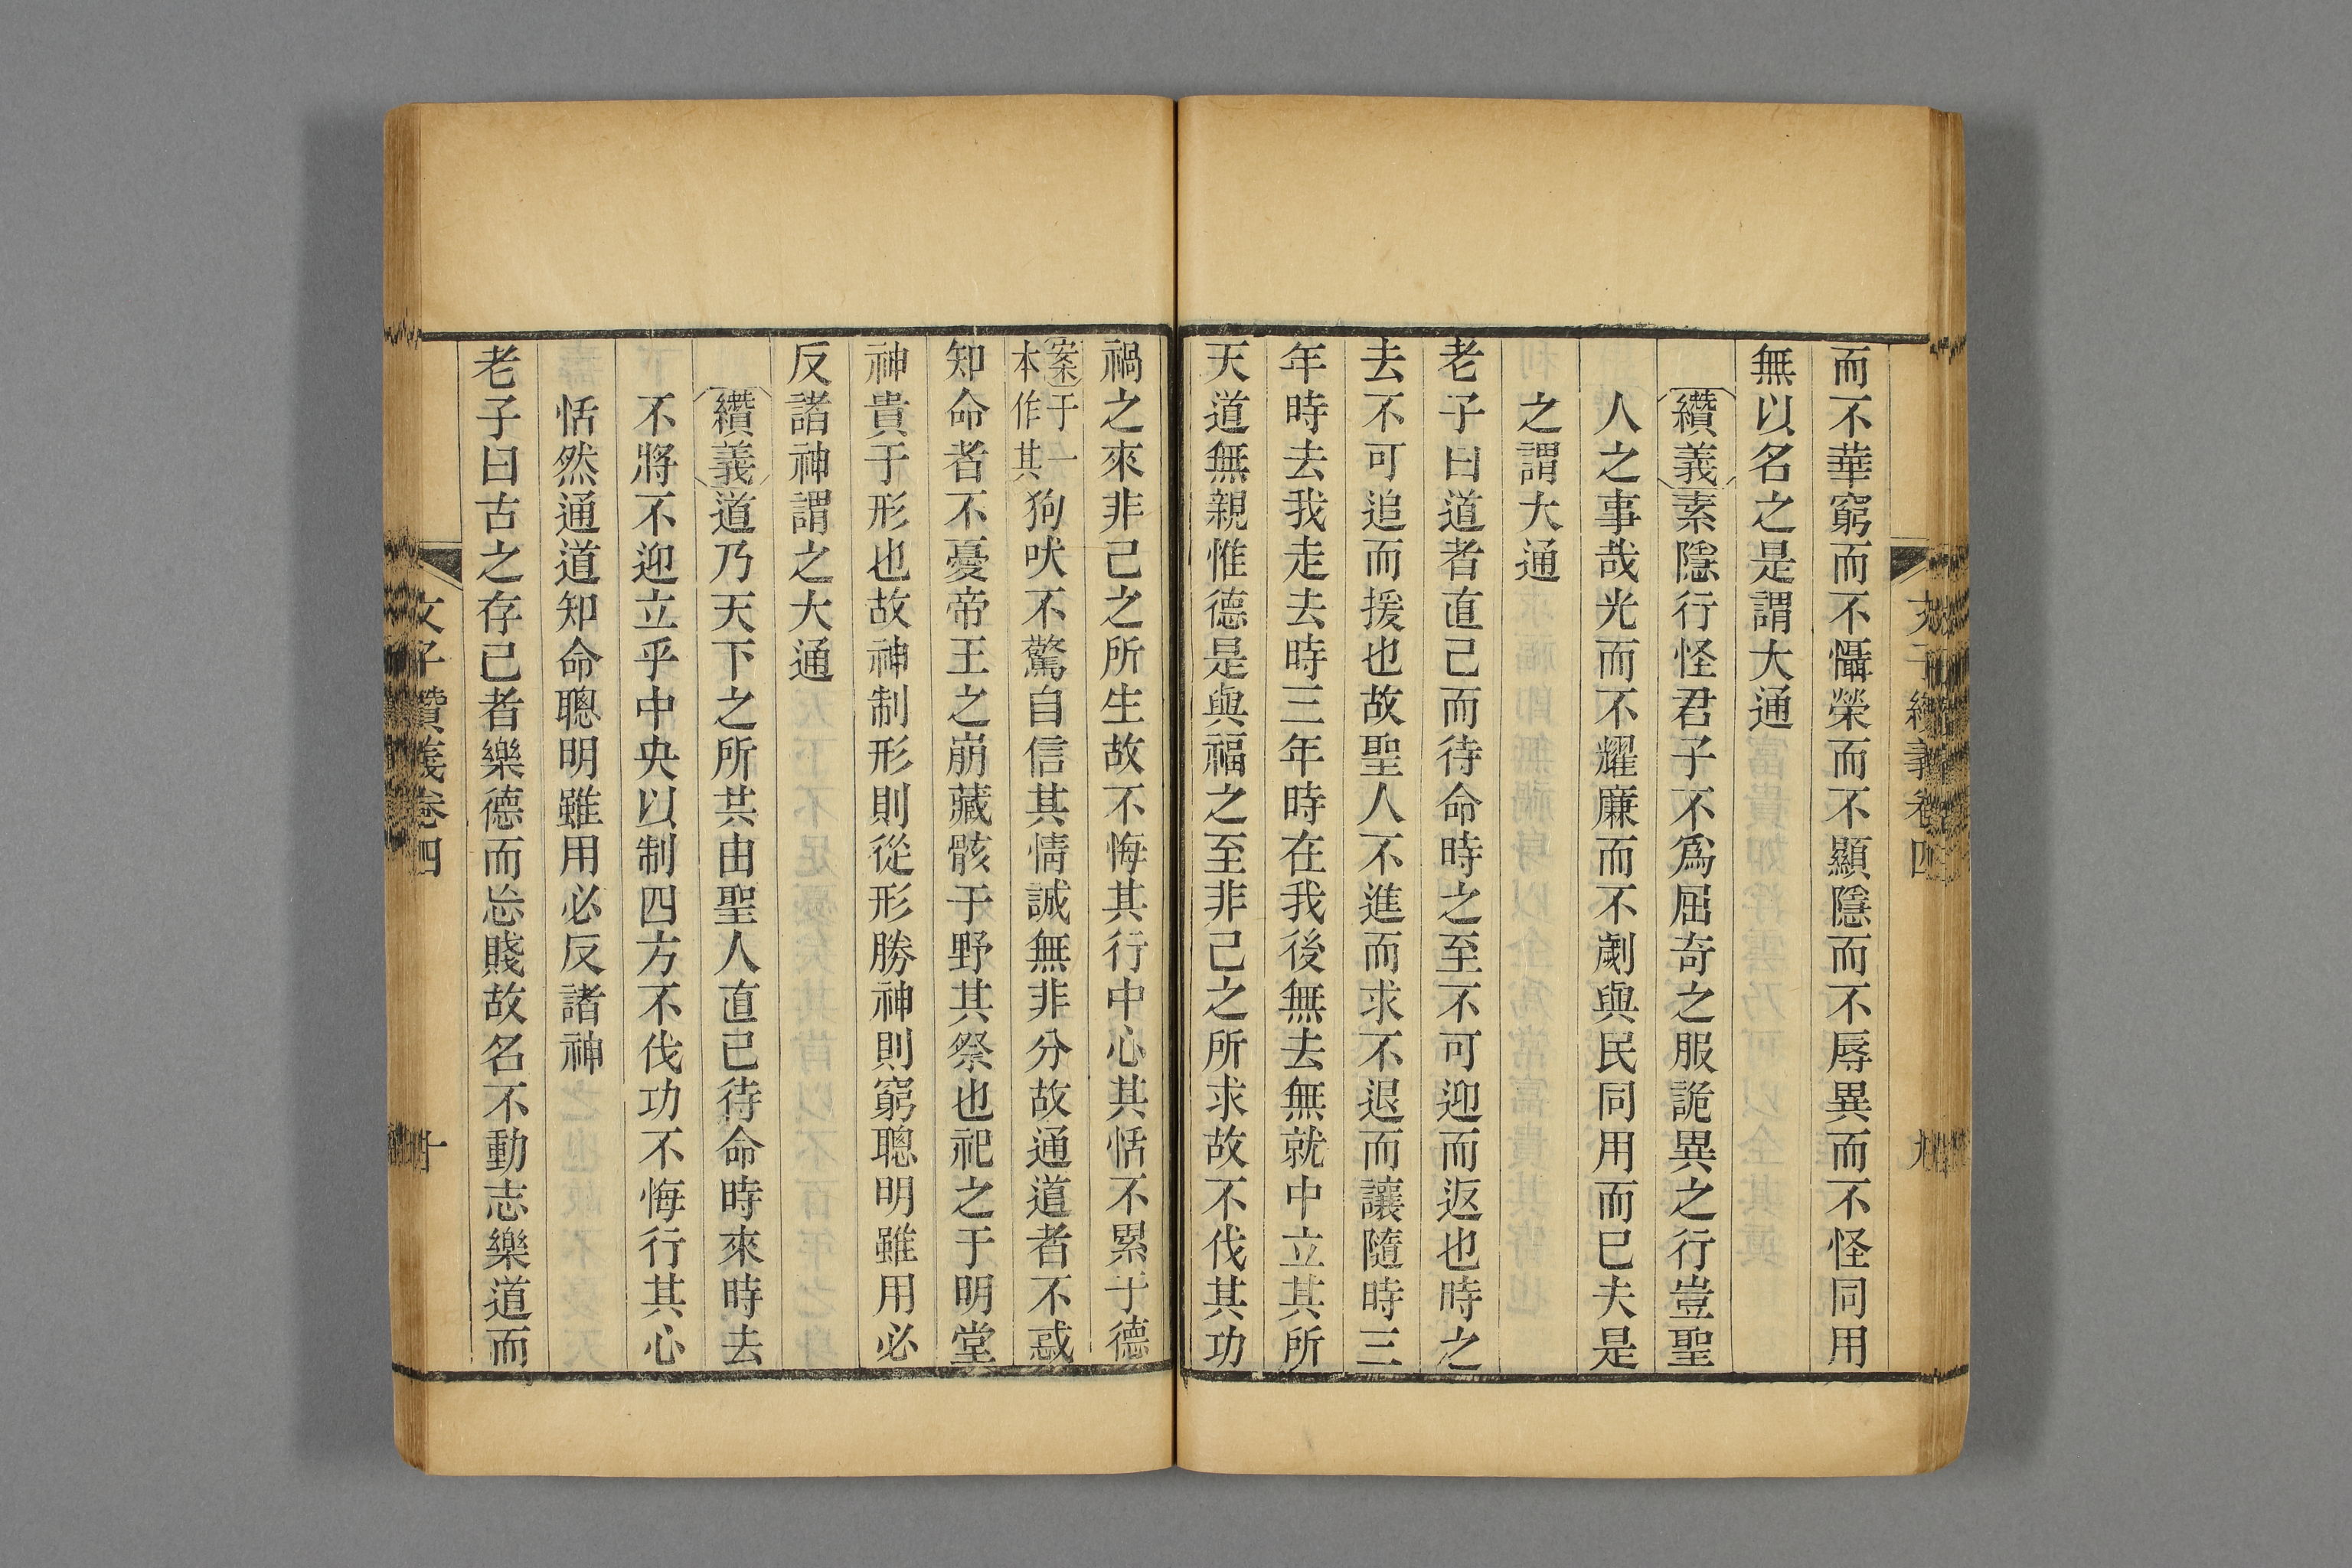 文子纘義卷四 九
而不華窮而不懾榮而不顯隱而不辱異而不怪同用
無以名之是謂大通
纘義素隱行怪君子不爲屈奇之服詭異之行豈聖
人之事哉光而不耀廉而不劌與民同用而已夫是
之謂大通
老子曰道者直己而待命時之至不可迎而返也時之
去不可追而援也故聖人不進而求不退而讓隨時三
年時去我走去時三年時在我後無去無就中立其所
天道無親惟德是與福之至非己之所求故不伐其功
禍之來非己之所生故不悔其行中心其恬不累于德
案于一
本作其
狗吠不驚自信其情誠無非分故通道者不惑
知命者不憂帝王之崩藏骸于野其祭也祀之于明堂
神貴于形也故神制形則從形勝神則窮聰明雖用必
反諸神謂之大通
纘義道乃天下之所共由聖人直己待命時來時去
不將不迎立乎中央以制四方不伐功不悔行其心
恬然通道知命聰明雖用必反諸神
老子曰古之存己者樂德而忘賤故名不動志樂道而
文子纘義卷四 十